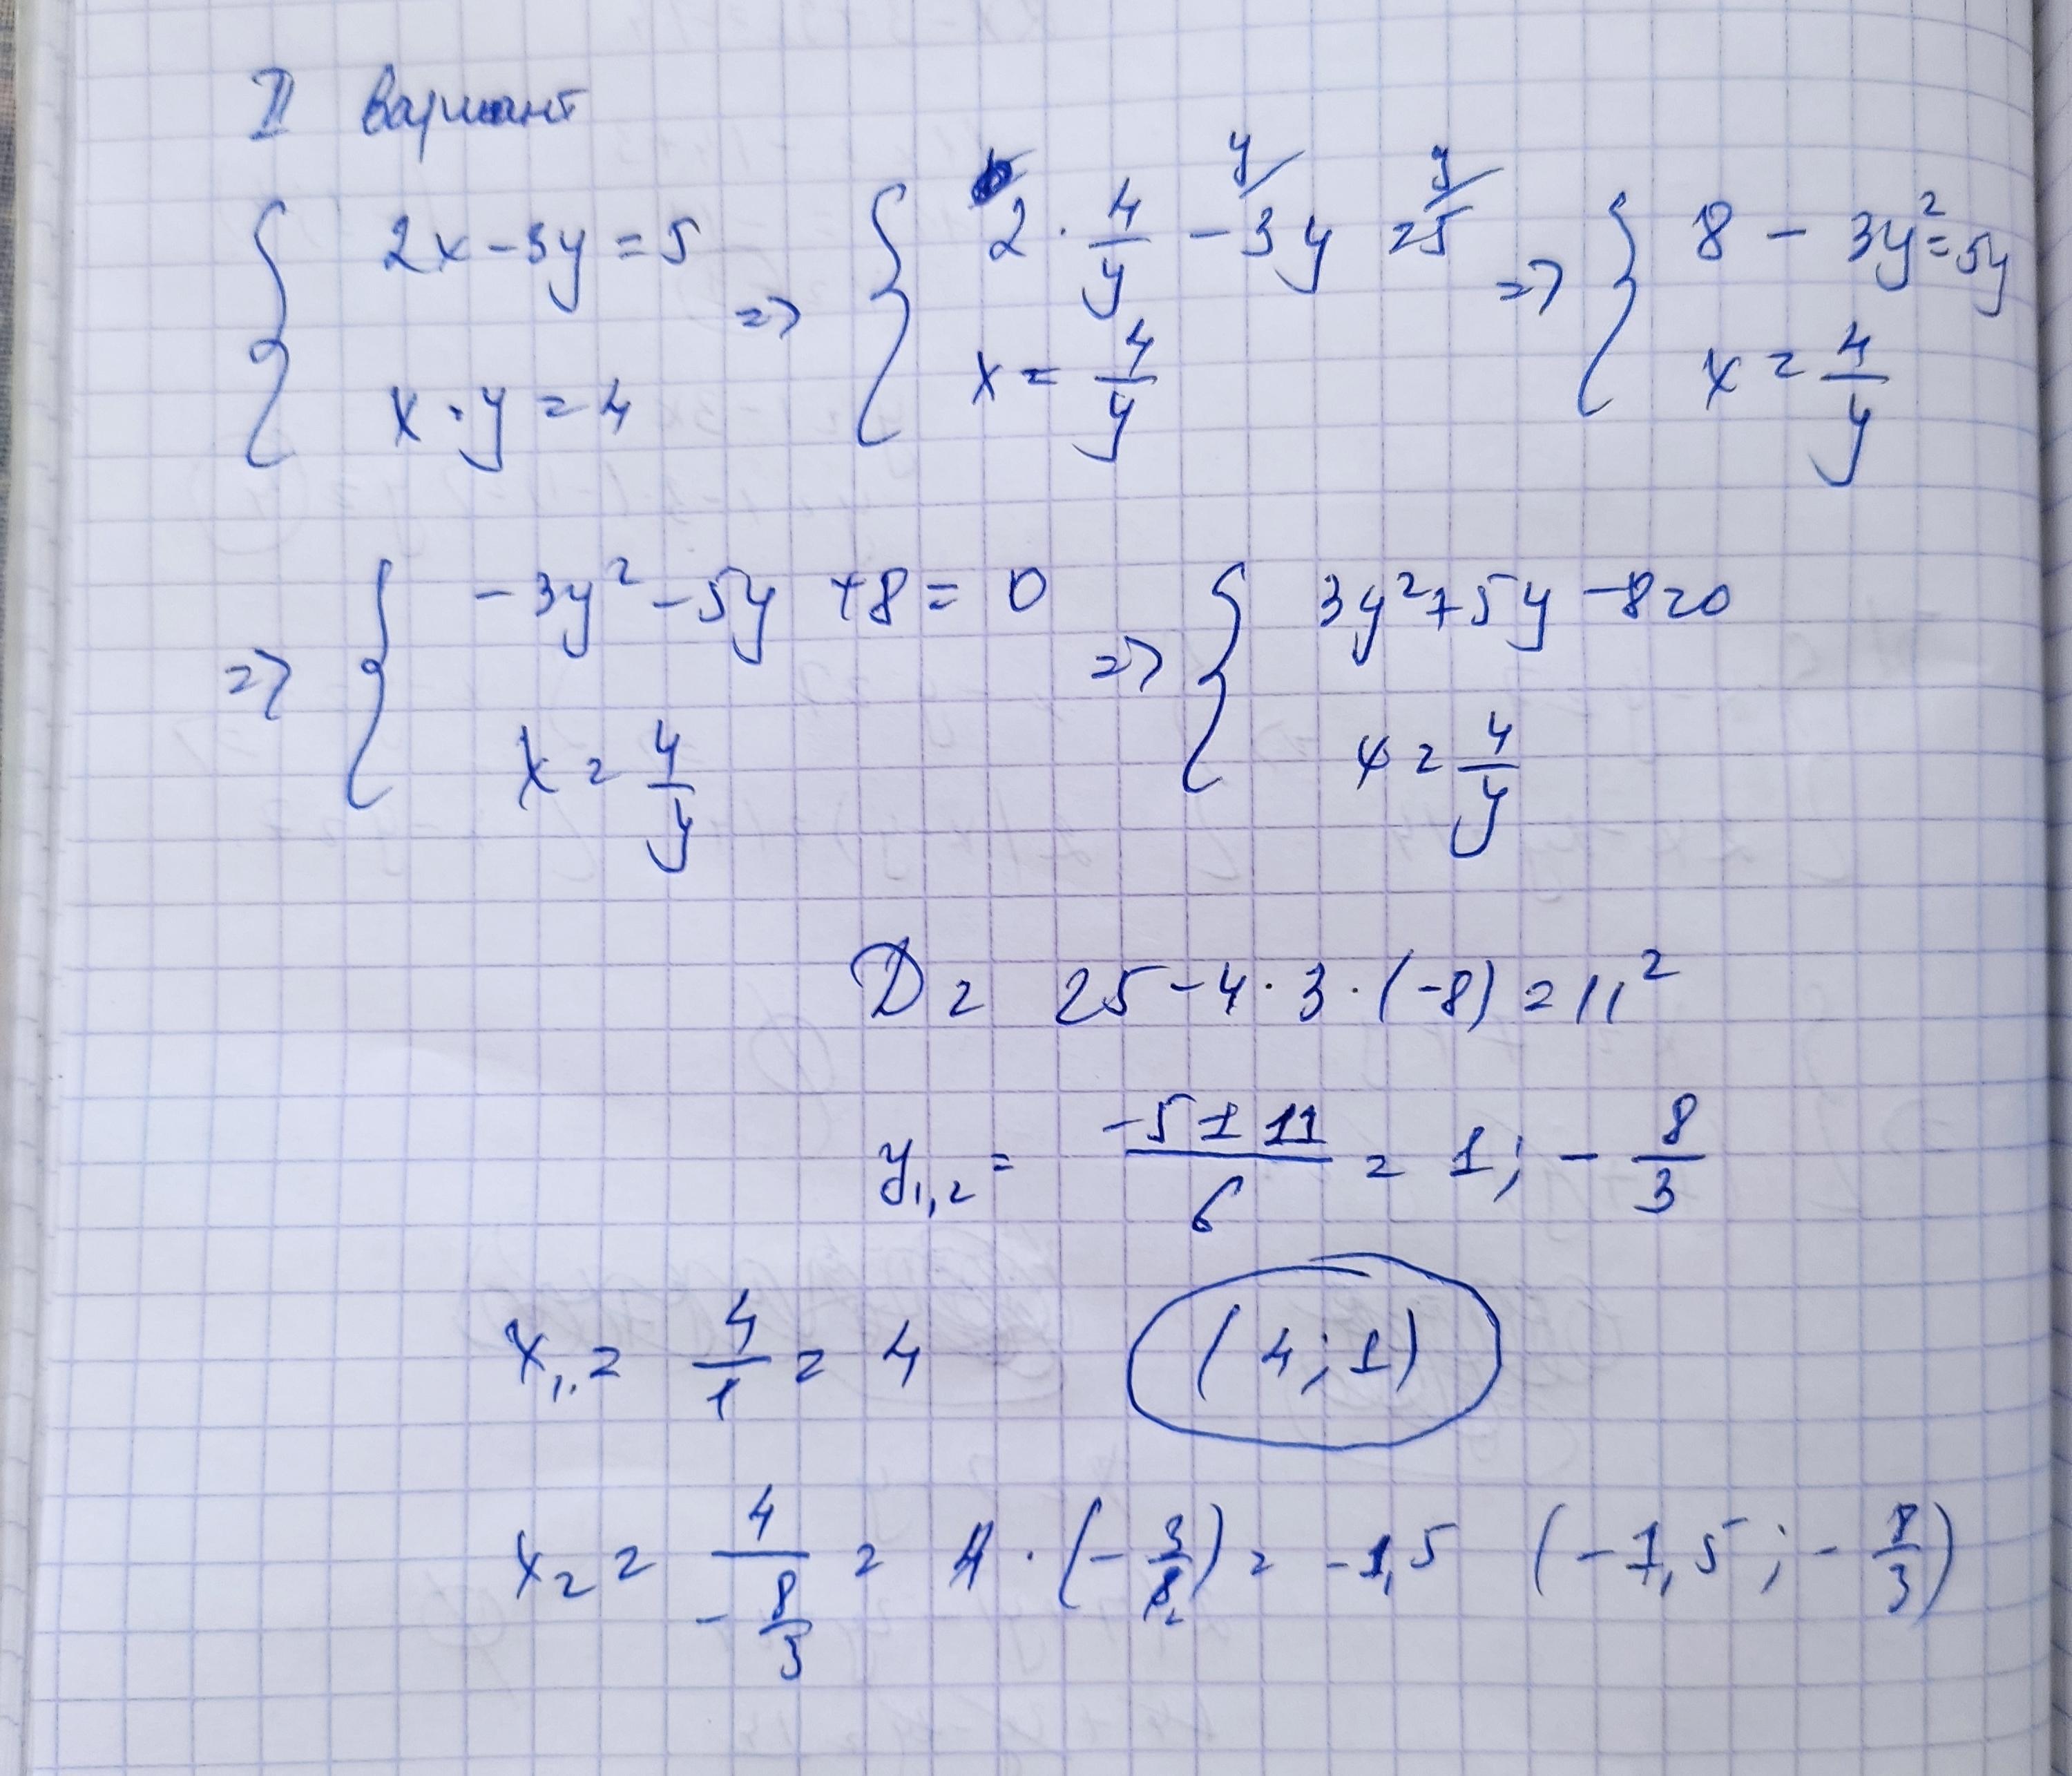 II вариант
{ 2x - 3y = 5 ; x · y = 4 => { 2 · 4/y - 3y = 5 ; x = 4/y => { 8 - 3y² = 5y ; x = 4/y
=> { -3y² - 5y + 8 = 0 ; x = 4/y => { 3y² + 5y - 8 = 0 ; x = 4/y
D = 25 - 4 · 3 · (-8) = 11²
y₁,₂ = (-5 ± 11)/6 = 1; - 8/3
x₁ = 4/1 = 4 (4; 1)
x₂ = 4/(-8/3) = 4 · (- 3/8) = -1,5 (-1,5; - 8/3)